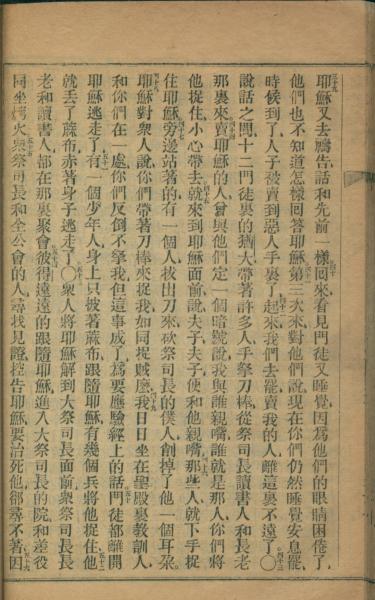 耶穌又去禱告、話和先前一樣、回來看見門徒又睡覺、因爲他們的眼睛困倦了、
他們也不知道怎樣回答、耶穌第三次來、對他們說、現在你們仍然睡覺安息罷、
時候到了、人子被賣到惡人手裏了、起來、我們去罷、賣我的人離這裏不遠了、〇
說話之間、十二門徒裏的猶大帶著許多人、手拏刀棒、從祭司長讀書人和長老
那裏來、賣耶穌的人、曾與他們定一個暗號、說、我與誰親嘴、誰就是那人、你們將
他捉住、小心帶去、就來到耶穌面前說、夫子、夫子、便和他親嘴、那些人就下手捉
住耶穌、旁邊站著的有一個人拔出刀來、砍祭司長的僕人、削掉了他一個耳朶、
耶穌對衆人說、你們帶著刀棒來捉我、如同捉賊麽、我日日坐在聖殿裏教訓人、
和你們在一處、你們反倒不拏我、但這事成了、爲要應驗經上的話、門徒都離開
耶穌逃走了、有一個少年人、身上只披著蔴布、跟隨耶穌、有幾個兵將他捉住、他
就丟了蔴布、赤著身子逃走了、〇衆人將耶穌解到大祭司長面前、衆祭司長長
老和讀書人、都在那裏聚會、彼得遠遠的跟隨耶穌、進入大祭司長的院、和差役
同坐烤火、衆祭司長和全公會的人、尋找見證控告耶穌、要治死他、郤尋不著、因